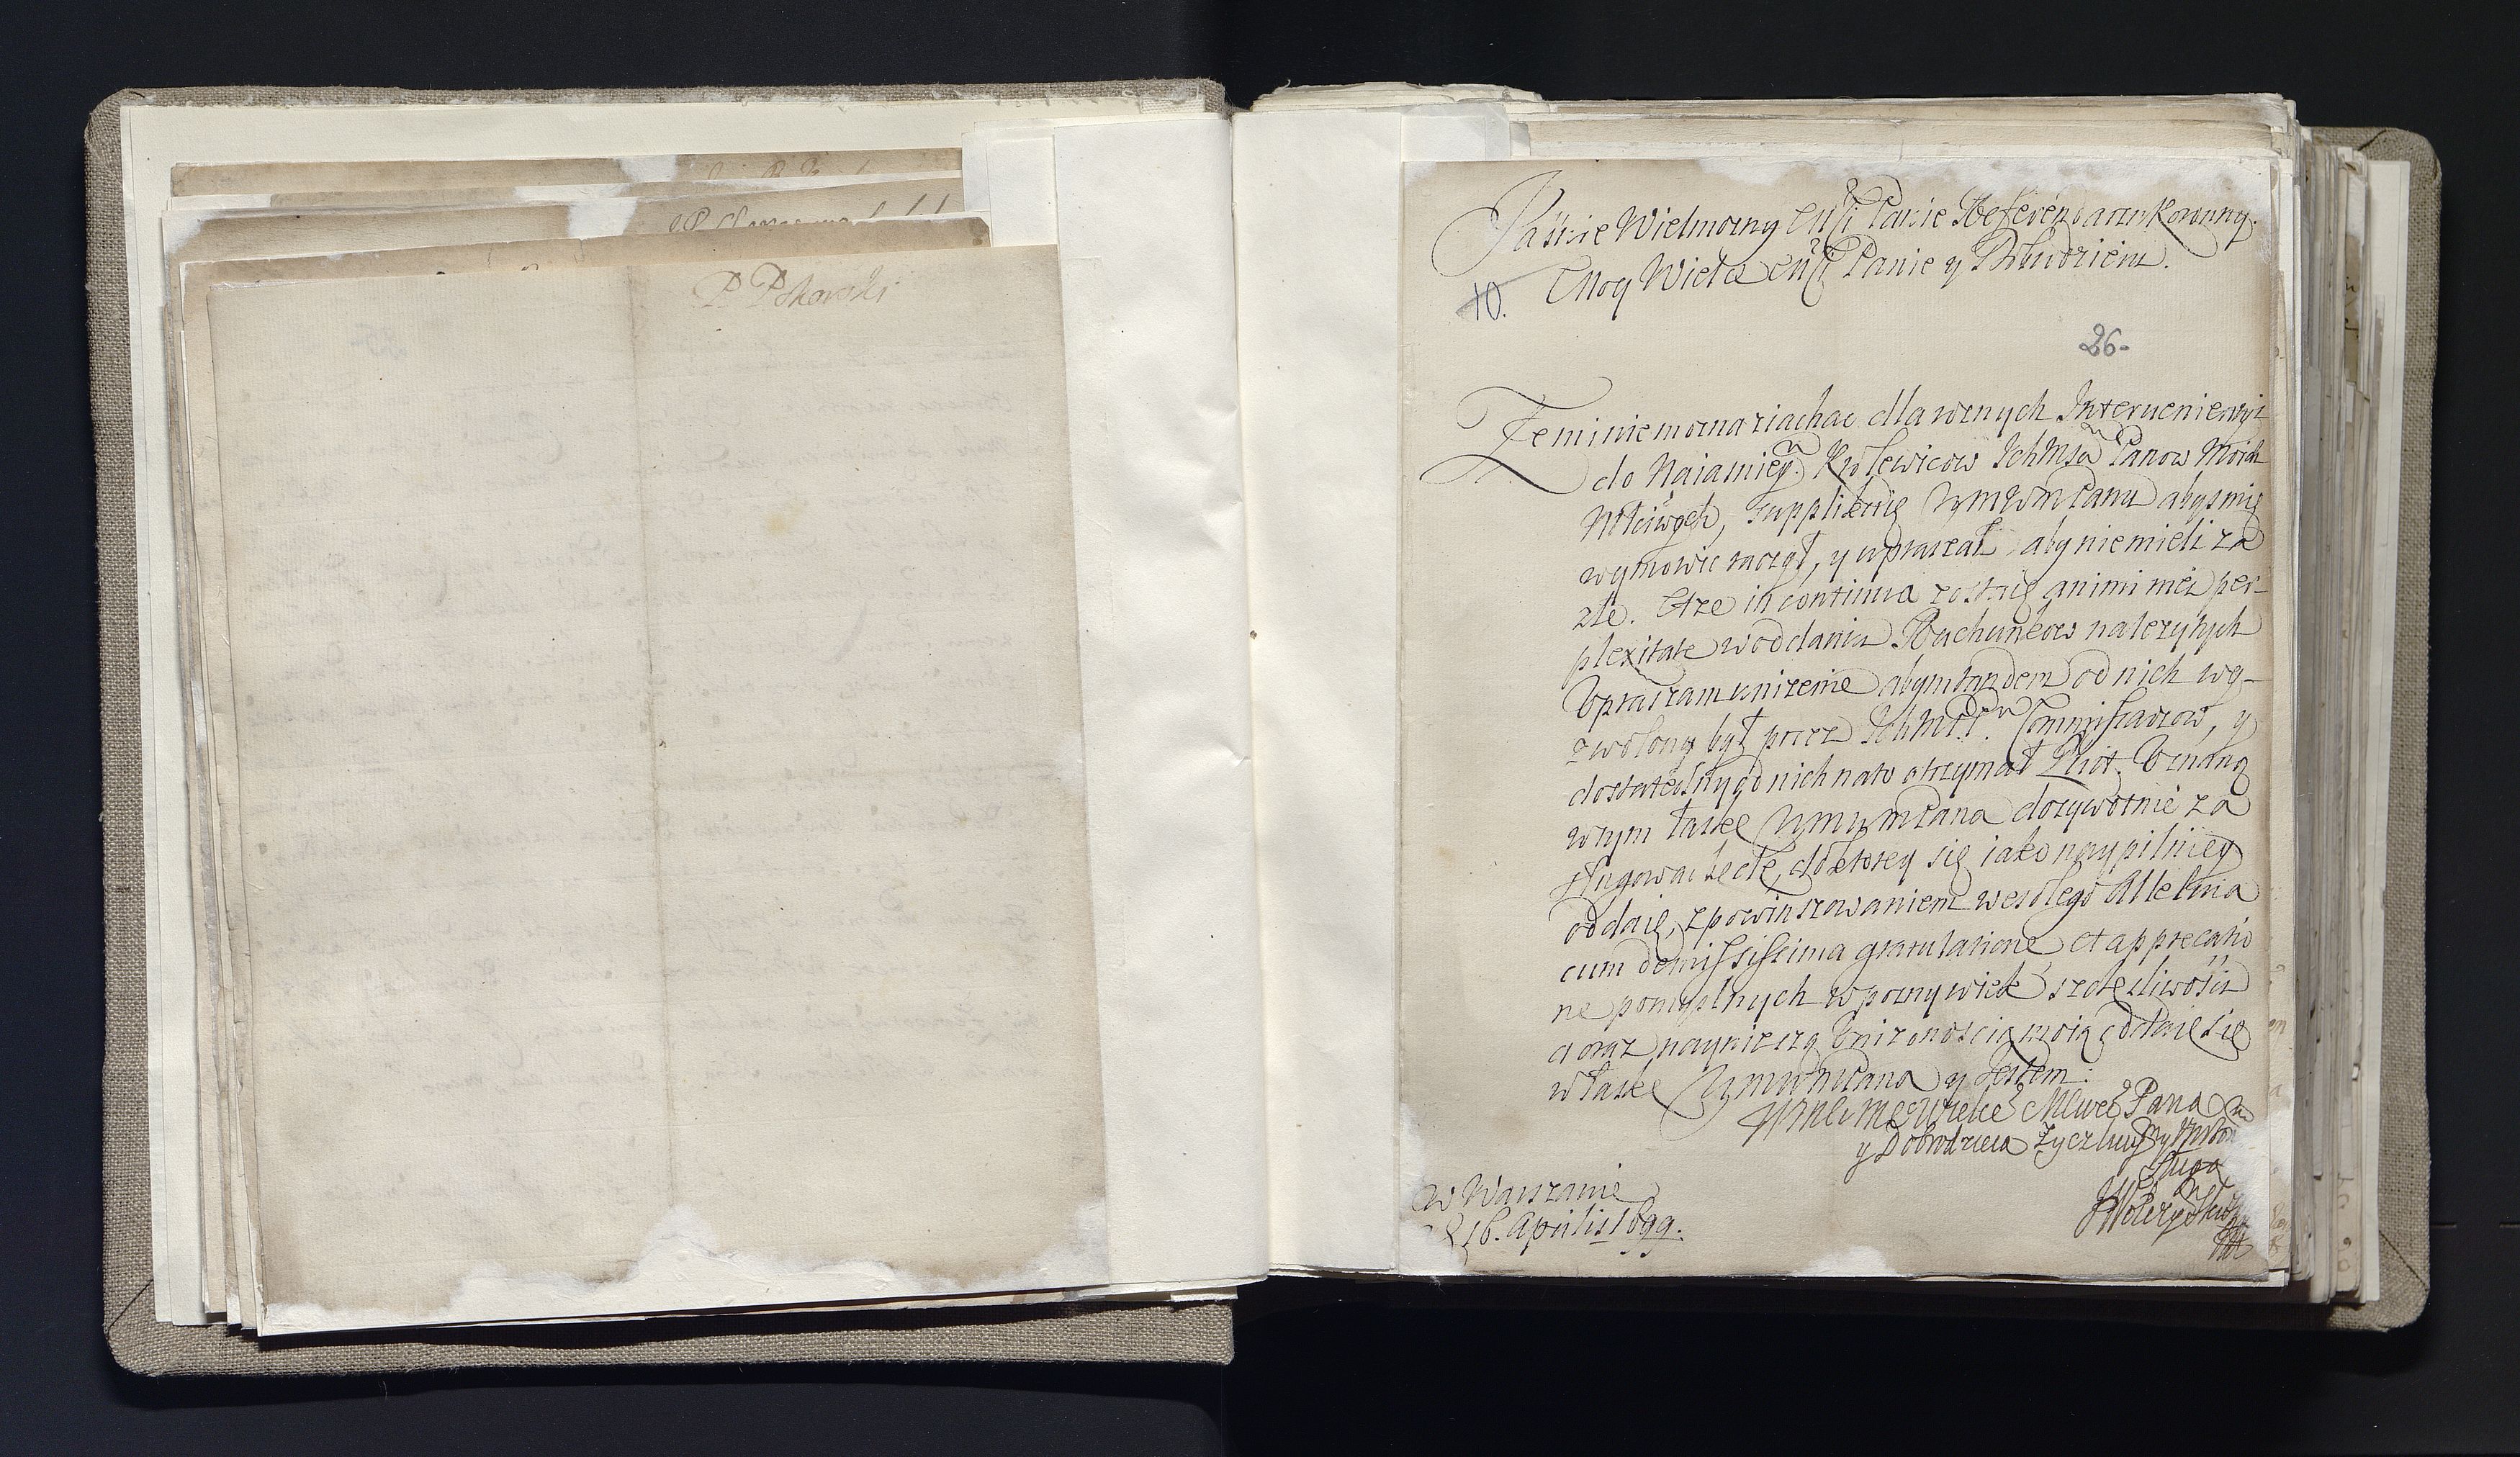 P. Pokorski
Jaśnie Wielmozny Mści Panie Referendarzu Koronny.
Moy Wielce Mści Panie y Dobrodzieiu.
10.
26.
Ze mi nie mozna ziachac dla wznych
do Naiasnieÿ. Krolewicow IchMsciow Panow Moich
Mściwych, supplikuię WMMPanu abysmię
wymowic raczył, y upraszał aby niemieli za
złe. A ze in continua zostaię animi mei per-
plexitate w oddaniu Rachunkow nalezytych
Upraszam unizenie abym tandem od nich wy-
zwolony był przez Commissarzow, y
dostateczny od nich na to otrzymał Quit. Uznaną
w tym łaskę WMMPana dozywotnie za
sługowac będę, do ktorey się iako naypilniey
oddaię, z powinszowaniem wesołego Alleluia
cum demississima gratulatione, et apprecatio
ne pomyslnych w pozny wiek szczęsliwosci
a oraz nayniższą unizonoscią moią oddaię się
w łaskę WMMPana y jestem:
WMMPana
y Dobrodzieia Zyczliwy y
Sługa
w Warszawie
16. Aprilis 1699.